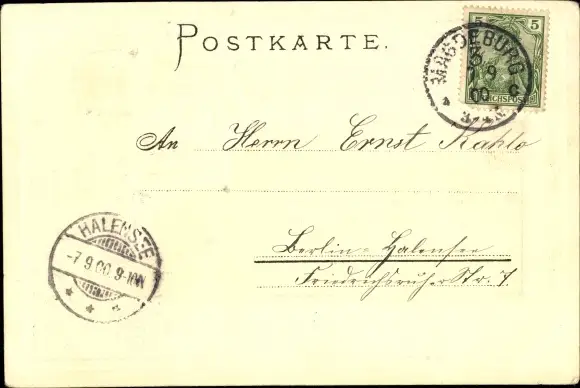 POSTKARTE.
5 5
REICHSPOST
MAGDEBURG
6 9
00
An Herrn Ernst Kahlo
HALENSEE
-7 9.00. 9-10V.
Berlin-Halensee
Friedrichsruher Str. 7